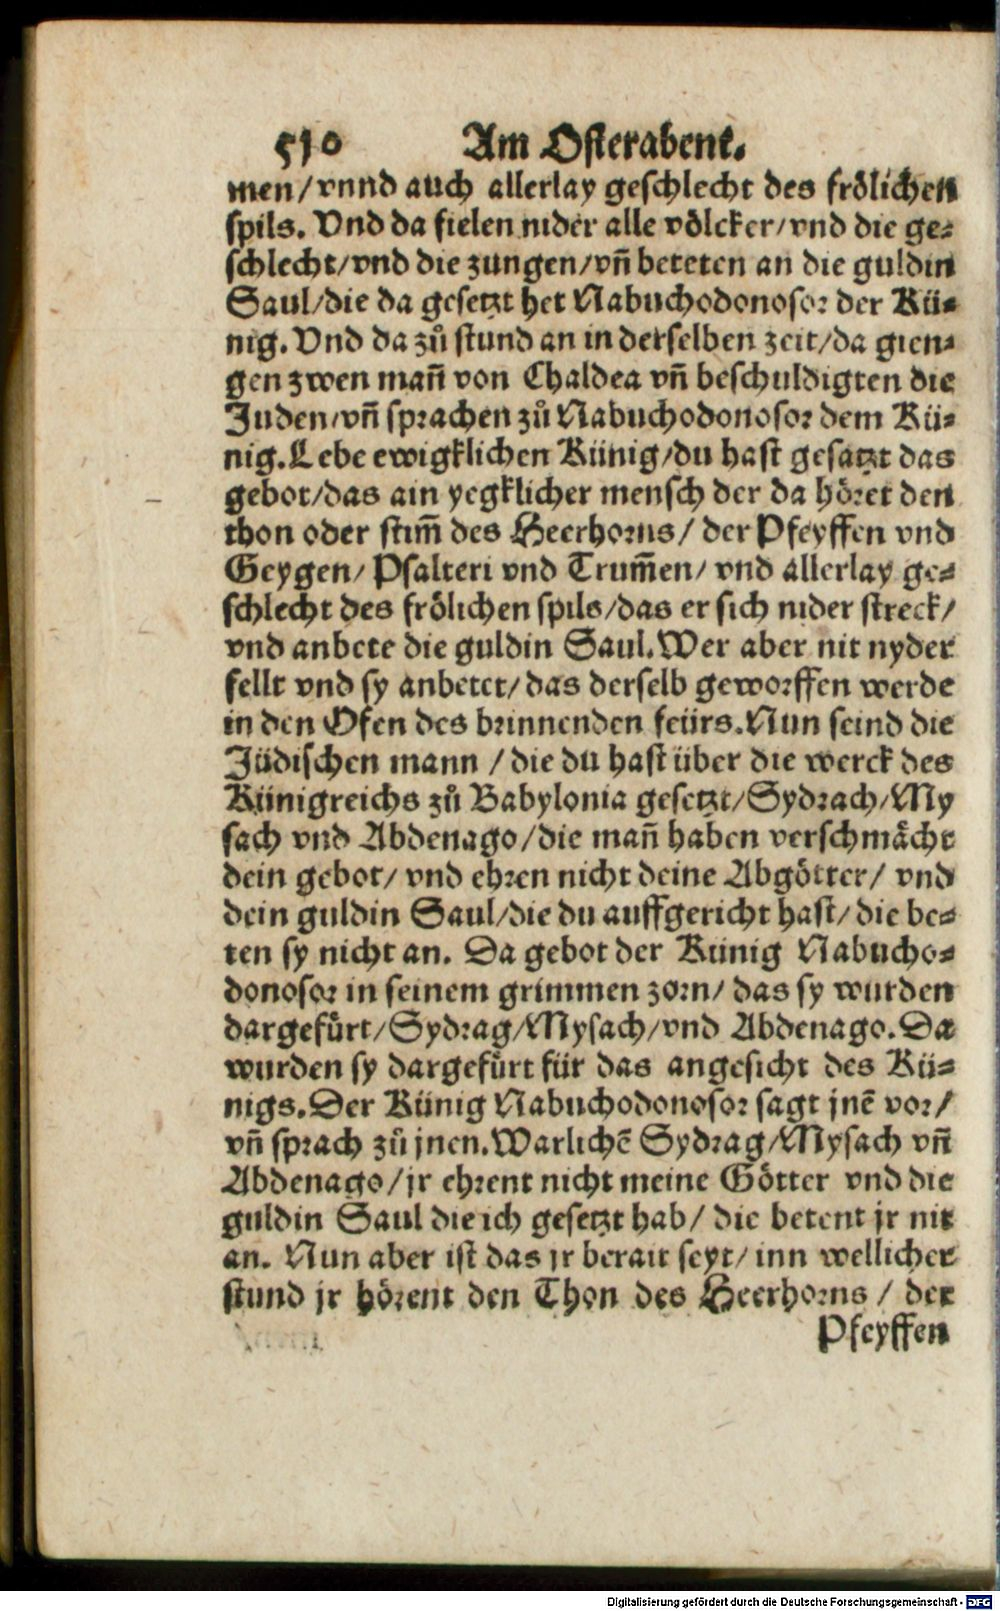 510 Am Osterabent.
men/vnnd auch allerlay geschlecht des frölichen
spils. Vnd da fielen nider alle völcker/vnd die ge⸗
schlecht/vnd die zungen/vñ beteten an die guldin
Saul/die da gesetzt het Nabuchodonosor der Kü⸗
nig. Vnd da zů stund an in derselben zeit/da gien⸗
gen zwen mañ von Chaldea vñ beschuldigten die
Juden/vñ sprachen zů Nabuchodonosor dem Kü⸗
nig. Lebe ewigklichen Künig/du hast gesatzt das
gebot/das ain yegklicher mensch der da höret den
thon oder stim̃ des Heerhorns/ der Pfeyffen vnd
Geygen/ Psalteri vnd Trum̃en/ vnd allerlay ge⸗
schlecht des frölichen spils/das er sich nider streck/
vnd anbete die guldin Saul. Wer aber nit nyder
fellt vnd sy anbetet/das derselb geworffen werde
in den Ofen des brinnenden feürs. Nun seind die
Jüdischen mann /die du hast über die werck des
Künigreichs zů Babylonia gesetzt/Sydrach/My
sach vnd Abdenago/die mañ haben verschmächt
dein gebot/ vnd ehren nicht deine Abgötter/ vnd
dein guldin Saul/die du auffgericht hast/ die be⸗
ten sy nicht an. Da gebot der Künig Nabucho⸗
donosor in seinem grimmen zorn/ das sy wurden
dargefürt/Sydrag/Mysach/vnd Abdenago. Da
wurden sy dargefürt für das angesicht des Kü⸗
nigs. Der Künig Nabuchodonosor sagt jnē vor/
vñ sprach zů jnen. Warlichē Sydrag/Mysach vñ
Abdenago/jr ehrent nicht meine Götter vnd die
guldin Saul die ich gesetzt hab/ die betent jr nit
an. Nun aber ist das jr berait seyt/ inn wellicher
stund jr hörent den Thon des Heerhorns / der
Pfeyffen
Digitalisierung gefördert durch die Deutsche Forschungsgemeinschaft - DFG